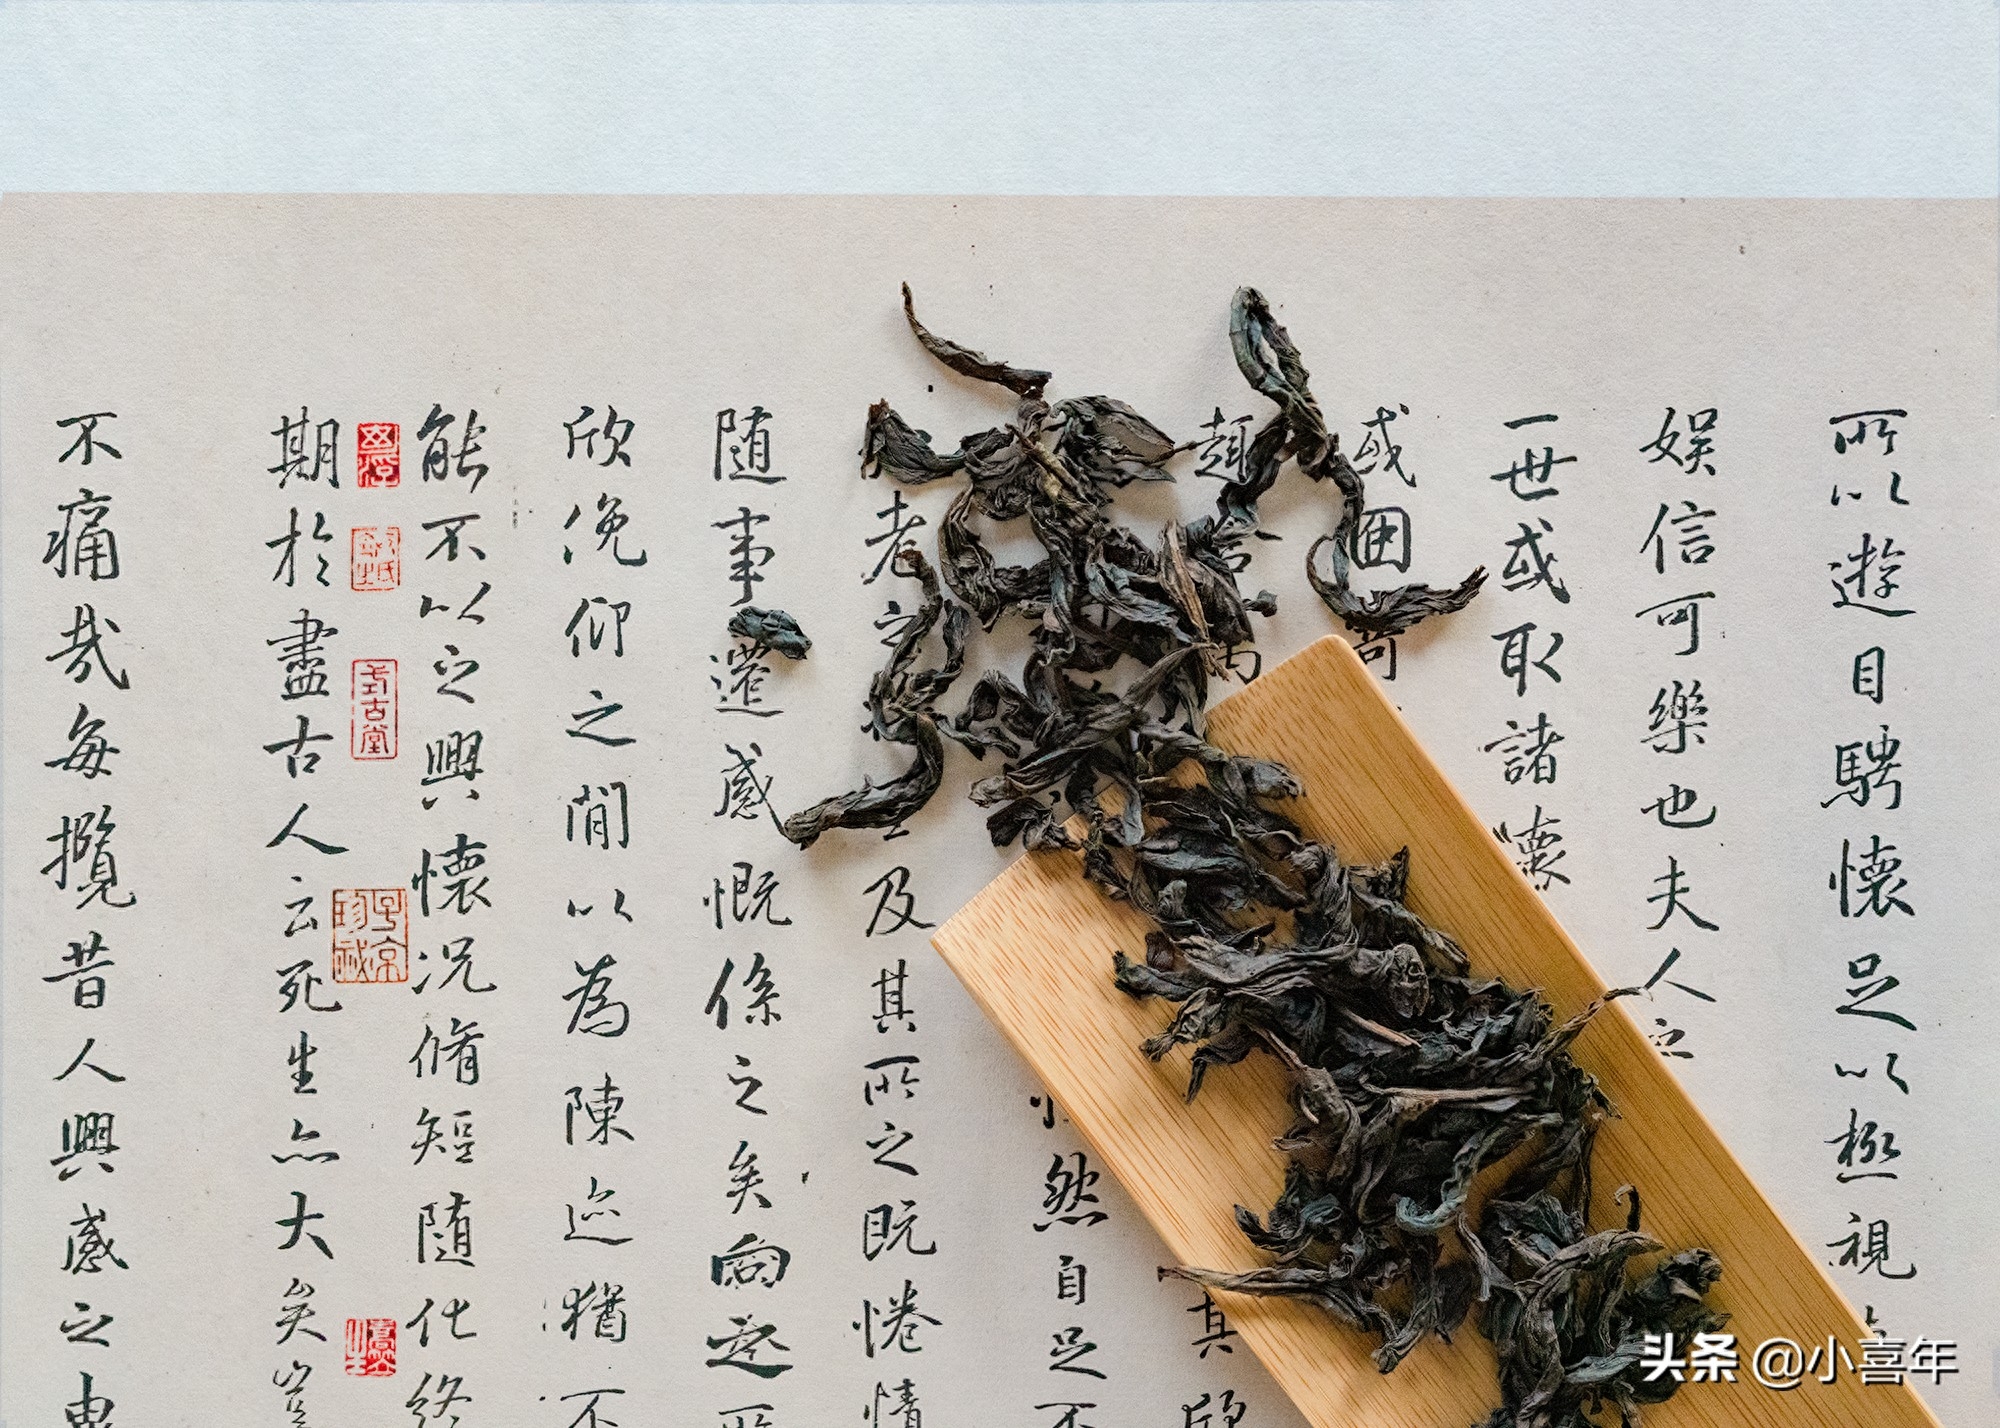 所以遊目騁懷足以極視
娱信可樂也夫人之
一世或取諸懷
或因
趣
其
然自足不
老之及其所之既惓情
随事遷感慨係之矣向之所
欣俛仰之閒以為陳迹猶不
能不以之興懷况脩短随化終
期於盡古人云死生亦大矣豈
不痛哉每攬昔人興感之由
式古堂
子京珍祕
头条 @小喜年